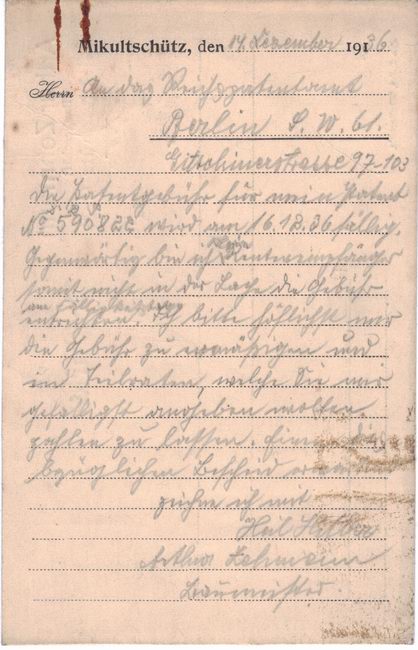 Mikultschütz, den 14 Dezember 1936
Herrn An das Reichspatentamt
Berlin S.W. 61.
Gitschinerstrasse 97-103
Die Patentgebühr für mein Patent
No 590822 wird am 16.12.36 fällig.
Gegenwärtig bin ich Rentenempfänger
somit nicht in der Lage die Gebühr
am Fälligkeitstag
entrichten. Ich bitte höflichst mir
die Gebühr zu ermäßigen und
in Teilraten, welche Sie mir
gefälligst angeben wollen
zahlen zu lassen. Einen dies
bezüglichen Bescheid
zeichne ich mit
Heil Hitler
Arthur Lehmann
Baumeister.